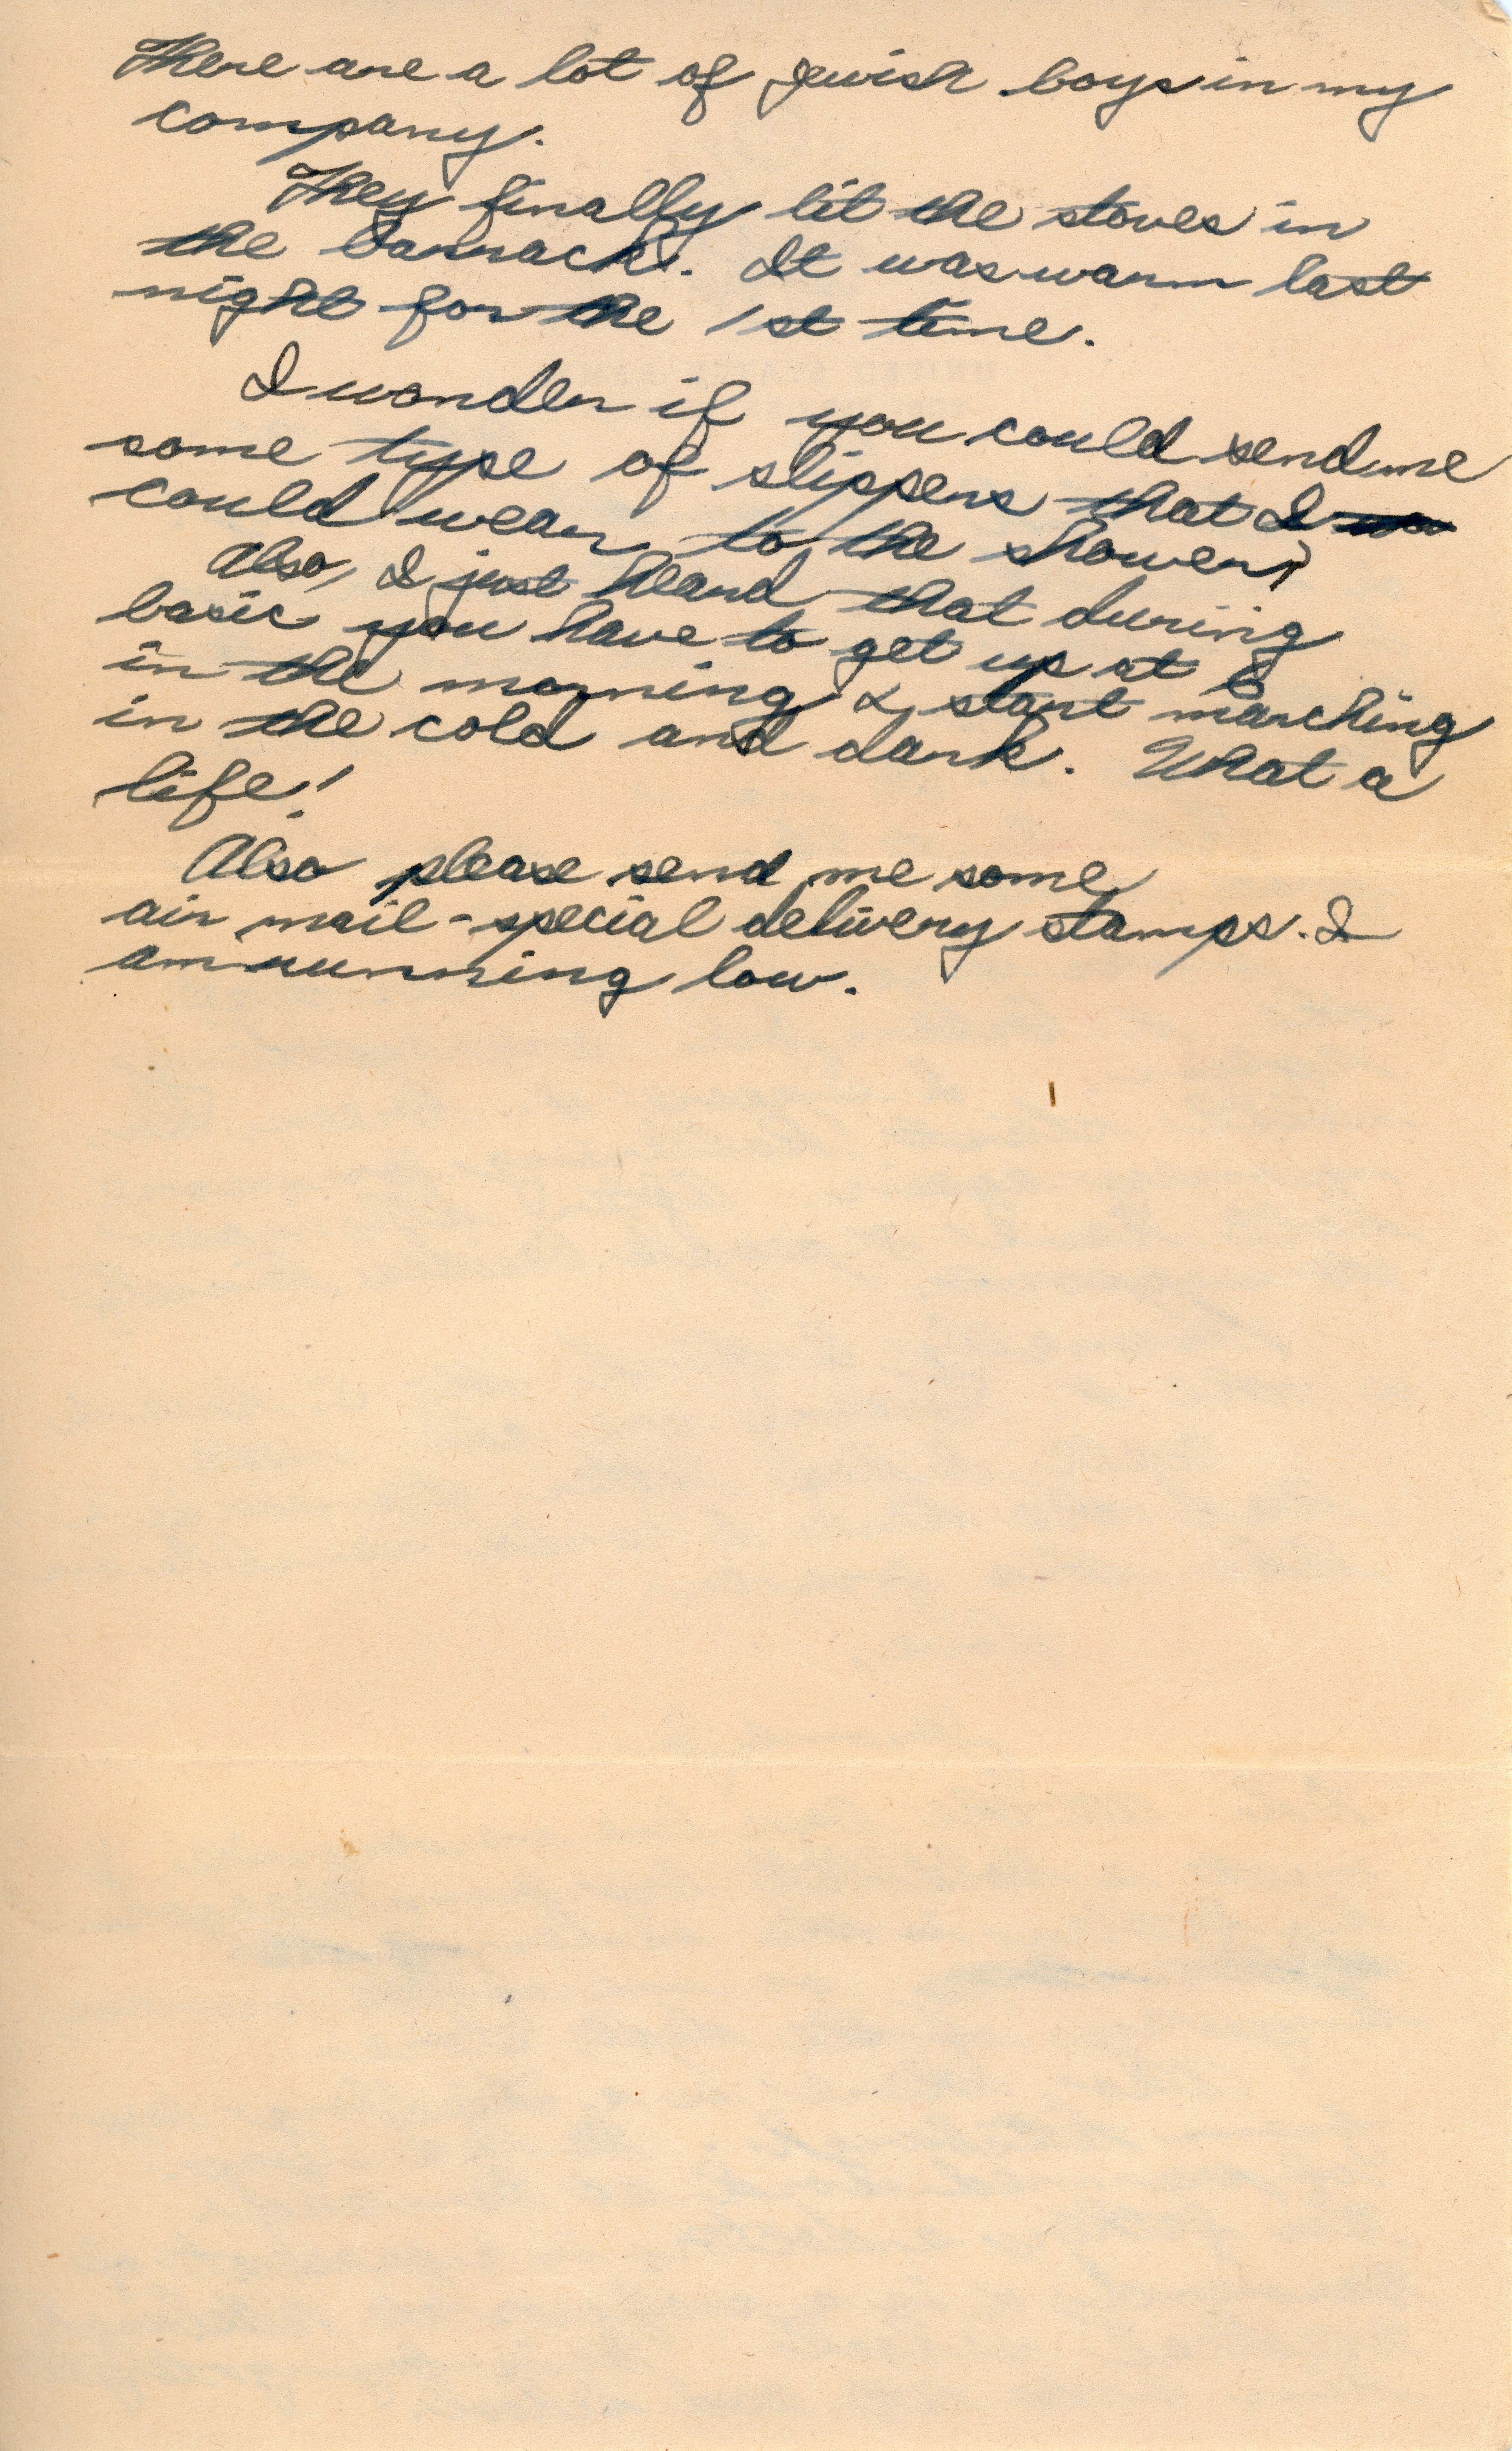 There are a lot of Jewish boys in my
company.
They finally lit the stoves in
the barracks. It was warm last
night for the 1st time.
I wonder if you could send me
some type of slippers that I
could wear to the showers?
Also, I just heard that during
basic you have to get up at 6
in the morning & start marching
in the cold and dark. What a
life!
Also please send me some
air mail - special delivery stamps. I
am running low.